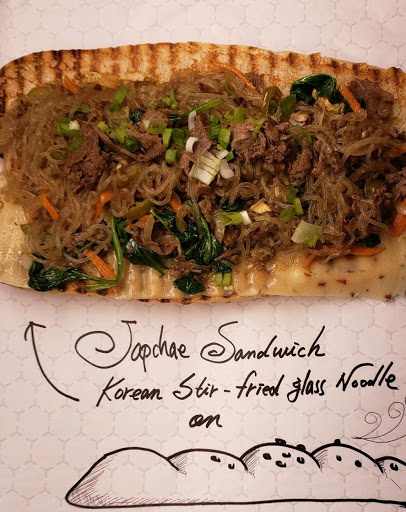 Japchae Sandwich
Korean Stir-fried glass Noodle
on